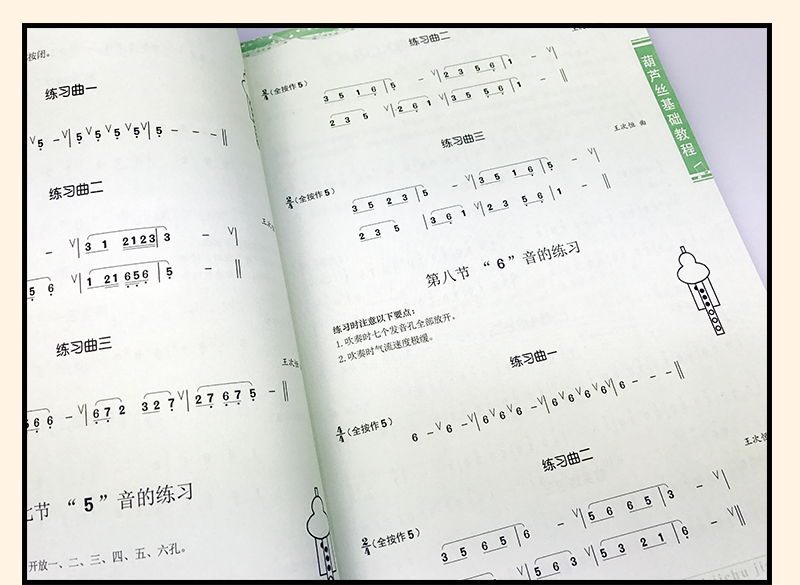 按闭。
练习曲一
V 5 – V| 5 V 5 V 5 V 5 V| 5 – – – ‖
练习曲二
王次恒
– V| 3 1 2123 | 3 – V|
5 6 V| 1 21 656 | 5 – ‖
练习曲三
王次恒
566 – V| 67 2 32 7 V| 27 67 5 – ‖
七节 “5”音的练习
开放一、二、三、四、五、六孔。
练习曲二
(全按作5) 3 5 1 6 | 5 – V| 2 3 5 6 | 1 – V|
2 3 5 V| 2 6 1 V| 3 5 5 6 | 1 – ‖
练习曲三
王次恒 曲
(全按作5) 3 5 2 3 | 5 – V| 3 5 1 6 | 5 – V|
2 3 5 | 3 6 1 V| 2 3 5 6 | 1 – ‖
第八节 “6”音的练习
练习时注意以下要点：
1. 吹奏时七个发音孔全部放开。
2. 吹奏时气流速度极缓。
练习曲一
4/4 (全按作5) 6 – V 6 – V| 6 V 6 V 6 – V| 6 V 6 V 6 V 6 V| 6 – – – ‖
练习曲二
王次恒
(全按作5) 3 5 6 5 | 6 – V| 5 6 6 5 | 3 – V|
5 6 3 V| 5 3 2 1 | 6 – V‖
葫芦丝基础教程